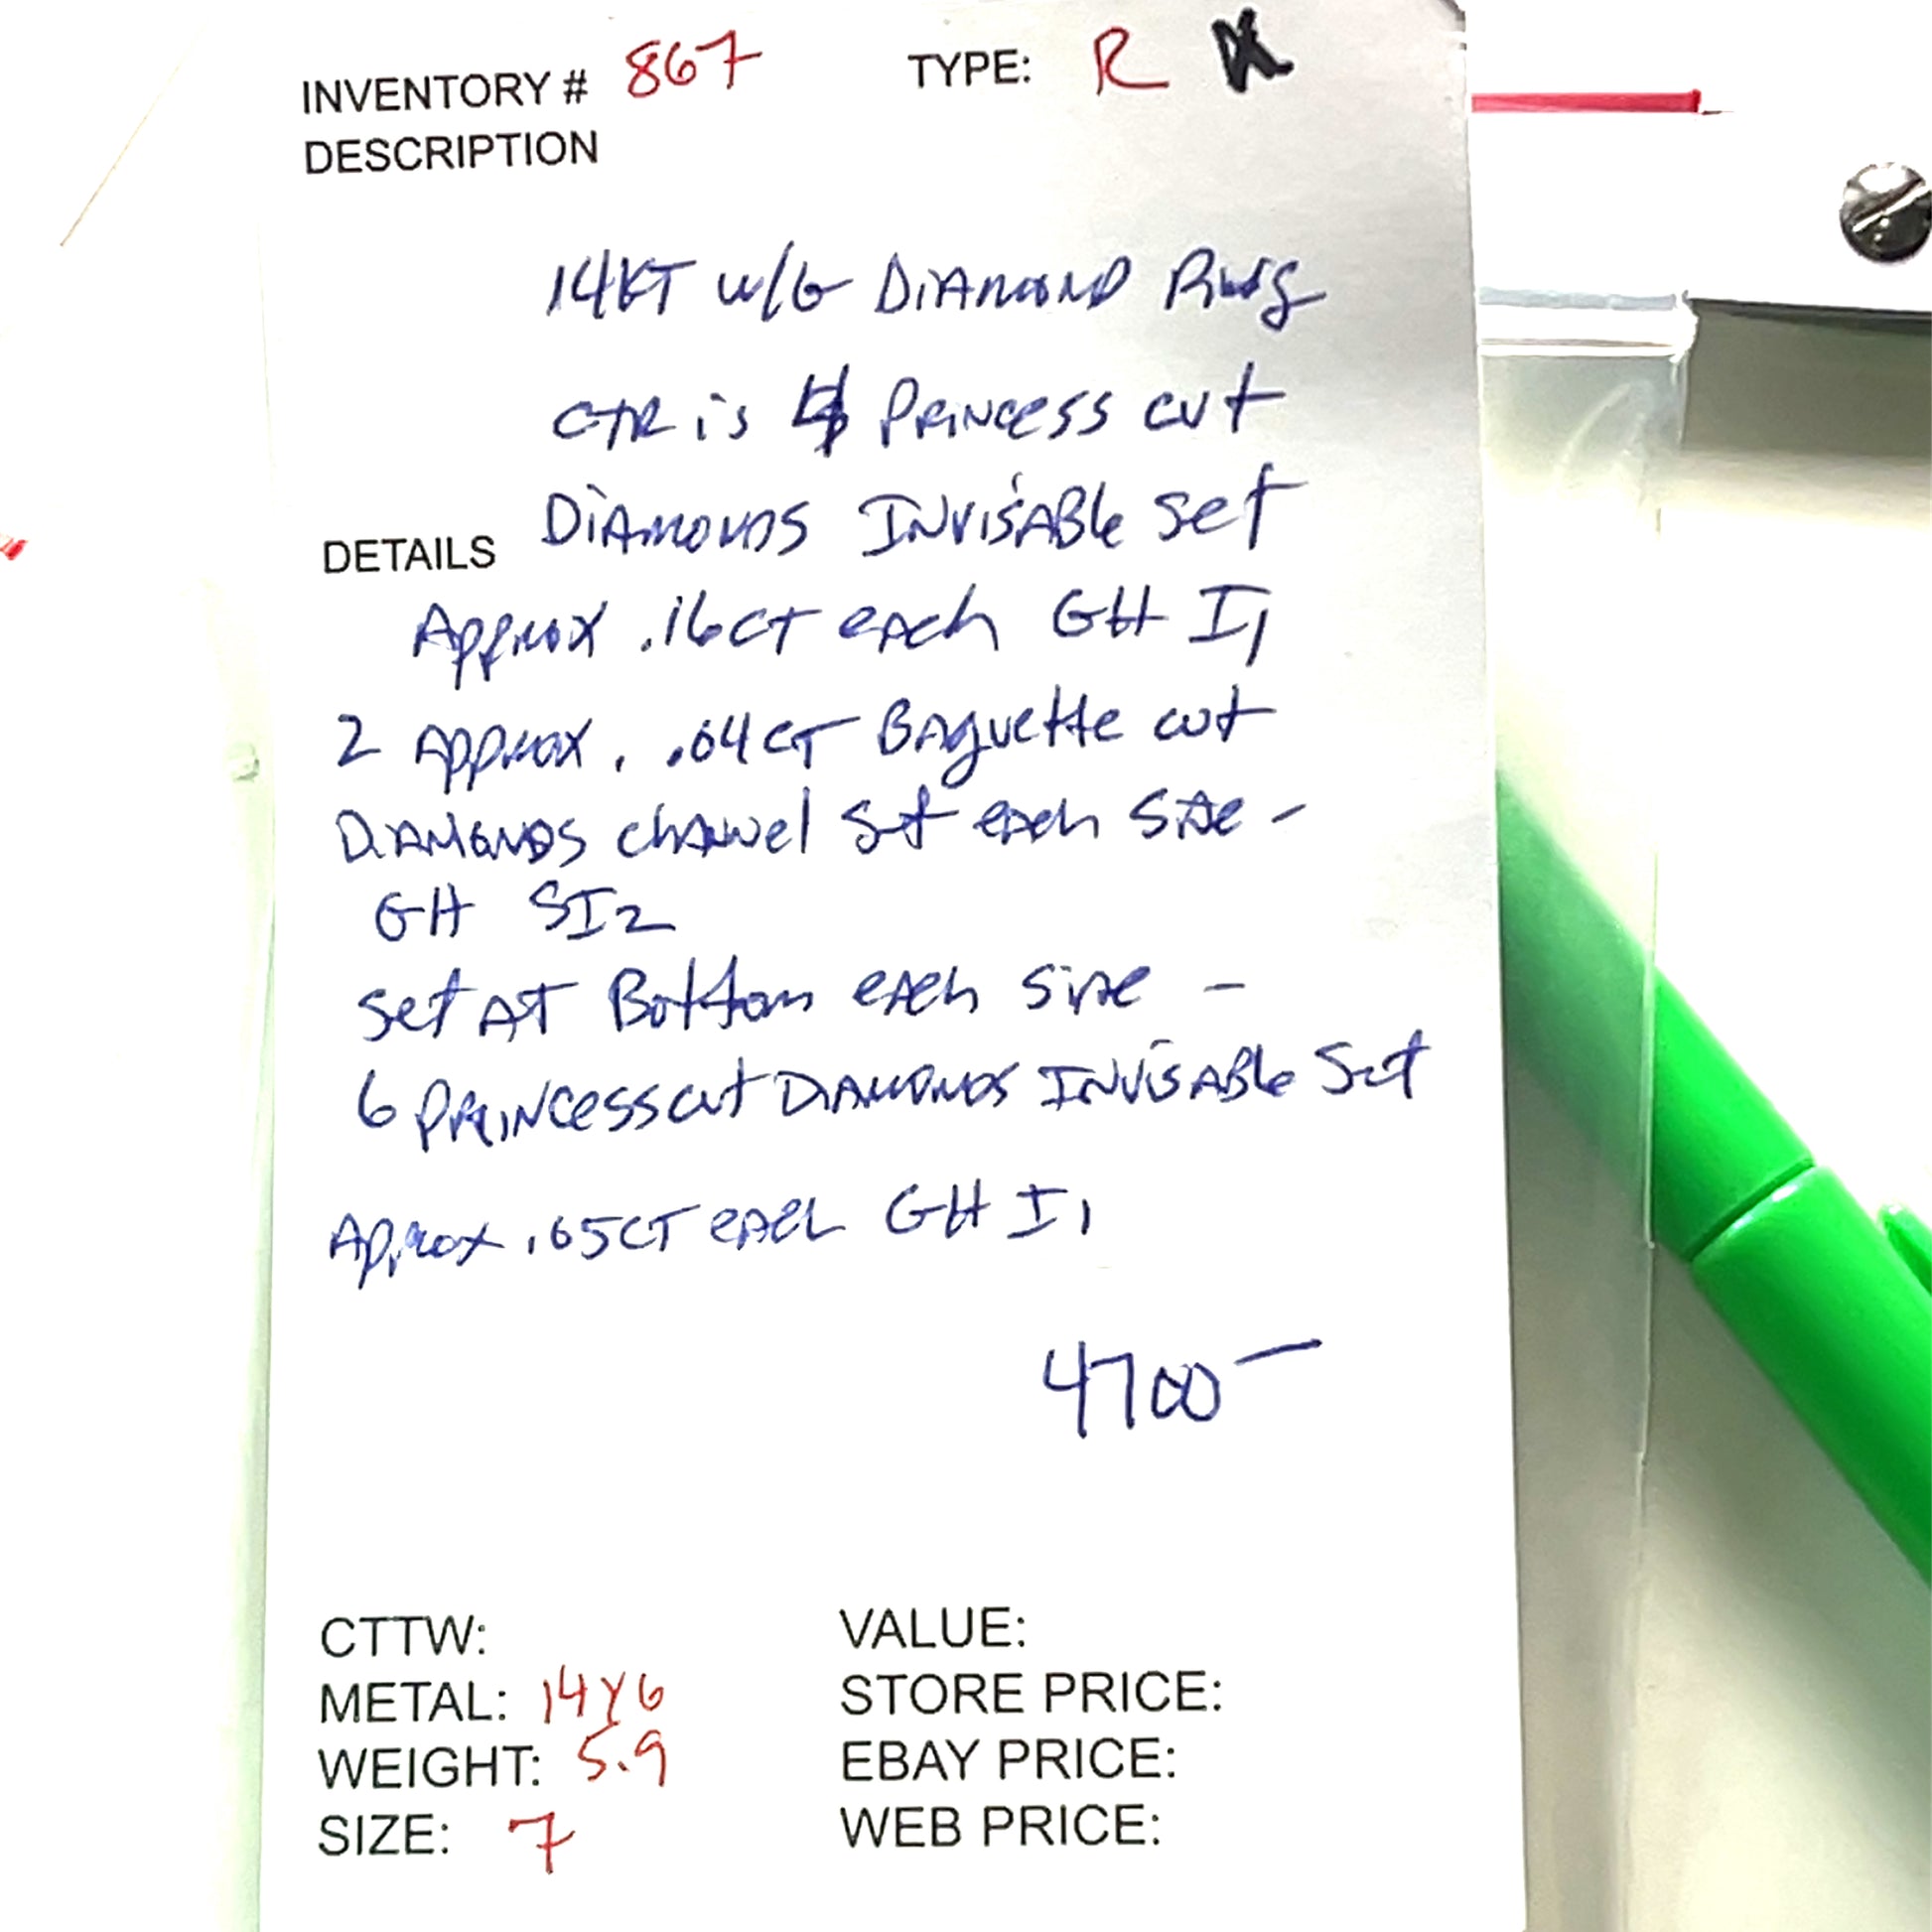 INVENTORY # 867 TYPE: R
DESCRIPTION
14KT W/G DIAMOND Ring
CTR is 4 Princess cut
DETAILS Diamonds INVISABLE set
Approx .16CT each GH I1
2 Approx. .04CT Baguette cut
Diamonds channel set each side -
GH SI2
set AT Bottom each side -
6 Princess cut Diamonds INVISABLE Set
Approx .05CT each GH I1
4700 -
CTTW: VALUE:
METAL: 14YG STORE PRICE:
WEIGHT: 5.9 EBAY PRICE:
SIZE: 7 WEB PRICE: